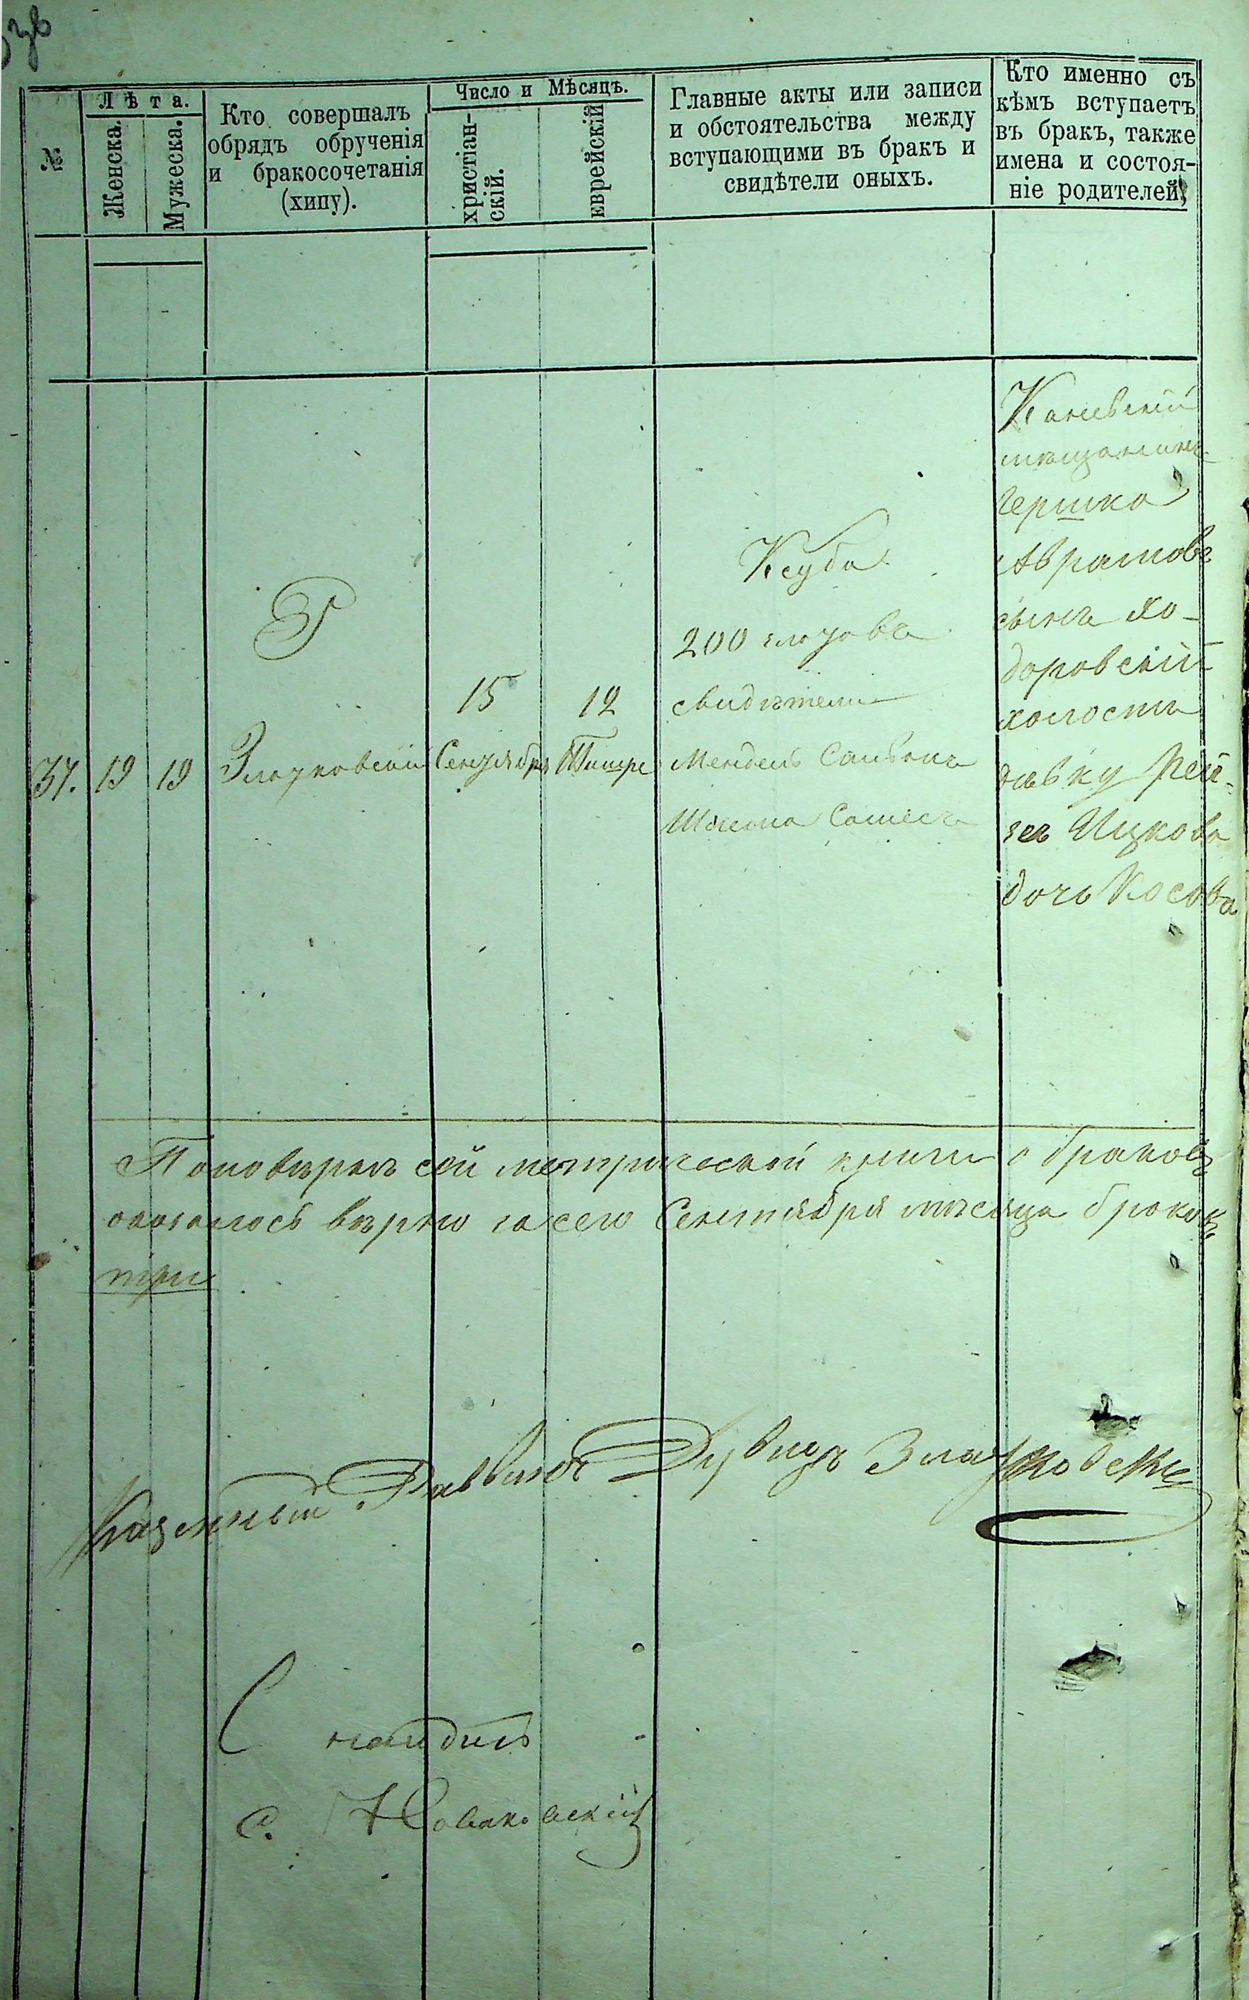 №
Лѣта.
Женска.
Мужеска.
Кто совершалъ
обрядъ обрученія
и бракосочетанія
(хипу).
Число и Мѣсяцъ.
христіан-
скій.
еврейскій
Главные акты или записи
и обстоятельства между
вступающими въ бракъ и
свидѣтели оныхъ.
Кто именно съ
кѣмъ вступаетъ
въ бракъ, также
имена и состоя-
ніе родителей,
37.
19
19
Р
Злотковскій
15
Сентября
12
Тишре
Ксуба
200 злотовъ
свидѣтели
Мендель
Шлема
Каневскій
мѣщанинъ
Гершко
Аврамовъ
сынъ Хо-
доровскій
холостъ
дѣвку Рей-
зел Ицкова
дочь Косова
По повѣркѣ сей метрической книги о браковъ
оказалось вѣрно за сего Сентября мѣсяца браковъ
три
Казенный Раввинъ Дувидъ Злотковскій
С
С. Новаковскій